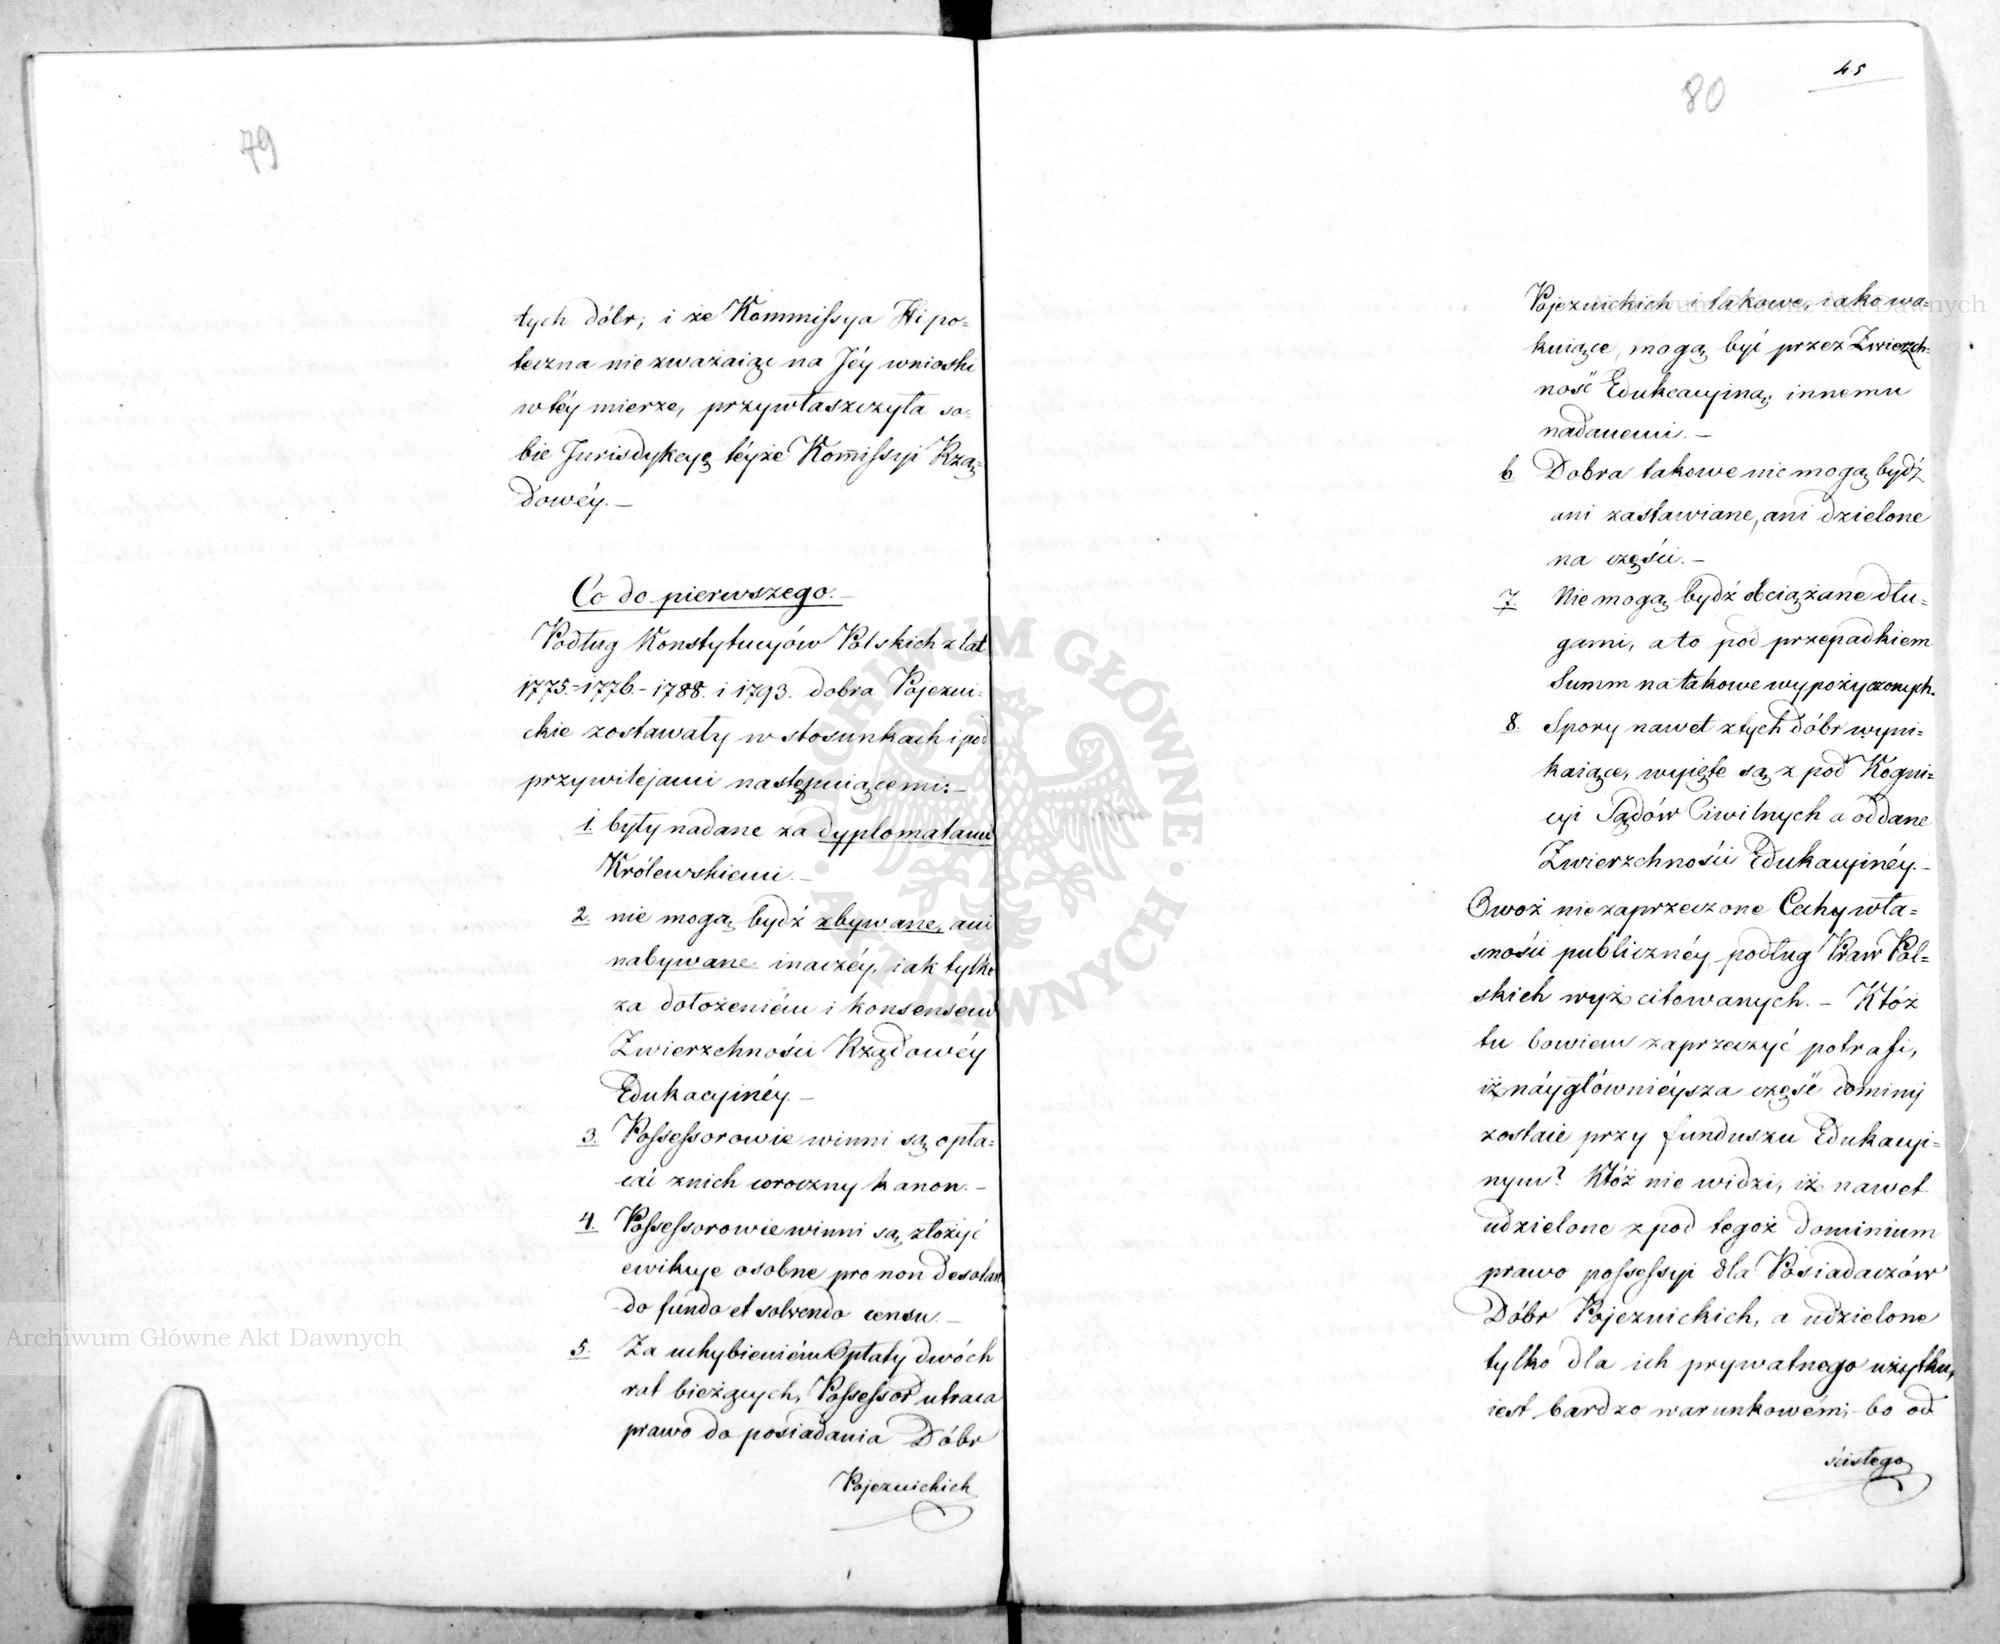 79
tych dóbr, i że Kommissya Hipo=
teczna nie zważaiąc na Jéy wnioski
w téy mierze, przywłaszczyła so=
bie Jurisdykcyę téyże Kommissyi Rzą=
dowéy. –
Co do pierwszego. –
Podług Konstytucyów Polskich z lat
1775.–1776.–1788. i 1793. dobra Pojezui=
ckie zostawały w stosunkach i pod
przywilejami następuiącemi: –
1. były nadane za dyplomatami
Królewskiemi. –
2. nie mogą bydź zbywane, ani
nabywane inaczéy, iak tylko
za dołożeniém i konsensem
Zwierzchności Rządowéy
Edukacyinéy. –
3. Possessorowie winni są opła=
cać z nich coroczny kanon. –
4. Possessorowie winni są złożyć
ewikcyje osobne pro non desolan
do fundo et solvendo censu. –
5. Za uchybieniém Opłaty dwóch
rat bieżących, Possessor utraca
prawo do posiadania Dóbr
Pojezuickich
45
80
Pojezuickich i takowe, iako wa=
kuiące, mogą być przez Zwierzch=
ność Edukacyiną, innemu
nadanemi. –
6. Dobra takowe nie mogą bydź
ani zastawiane, ani dzielone
na części. –
7. Nie mogą bydź obciążane dłu=
gami, a to pod przepadkiem
Summ na takowe wypożyczonych.
8. Spory nawet z tych dóbr wyni=
kaiące, wyięte są z pod Kogni=
cyi Sądów Ciwilnych a oddane
Zwierzchności Edukacyinéy. –
Owoż niezaprzeczone Cechy wła=
sności publicznéy, podług Praw Pol=
skich wyż citowanych. – Któż
tu bowiem zaprzeczyć potrafi,
iż náygłównieysza część dominij
zostaie przy funduszu Edukacyi=
nym? Któż nie widzi, iż nawet
udzielone z pod tegoż dominium
prawo possessyi dla Posiadaczów
Dóbr Pojezuickich, a udzielone
tylko dla ich prywatnego użytku,
iest bardzo warunkowém; bo od
ścisłego
Archiwum Główne Akt Dawnych
Archiwum Główne Akt Dawnych
ARCHIWUM GŁÓWNE · AKT DAWNYCH ·